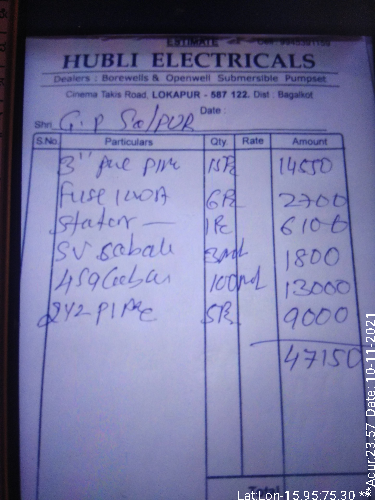 ESTIMATE
HUBLI ELECTRICALS
Dealers : Borewells & Openwell Submersible Pumpset
Cinema Takis Road, LOKAPUR - 587 122. Dist : Bagalkot
Date :
Shri G.P Salpur
S.No. Particulars Qty. Rate Amount
3" pvc pipe 15Pc 14550
Fuse 6Pc 2700
Stator — 1Pc 6100
1800
100 13000
2 1/2 pipe 5Pc 9000
47150
Total
Lat:Lon-15.95:75.30 **Acur:23.57 Date: 10-11-2021